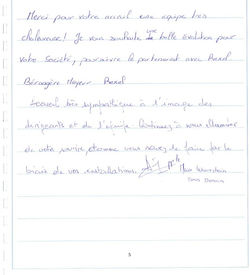 Merci pour votre accueil une équipe très
chaleureuse! Je vous souhaite une belle évolution pour
votre Société, poursuivre le partenariat avec
Bérangère Mayeur
Accueil très sympathique à l'image des
dirigeants et de l'équipe. Continuez à vous
de votre comme vous savez le faire par le
biais de vos installations.
5